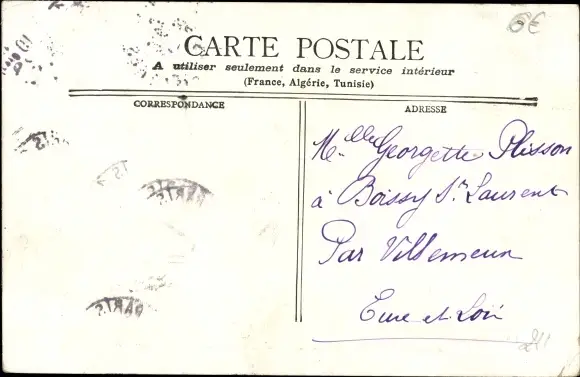 6€
CARTE POSTALE
A utiliser seulement dans le service intérieur
(France, Algérie, Tunisie)
CORRESPONDANCE
ADRESSE
Mlle Georgette Plisson
à Boissy St Laurent
Par Villemeux
Eure et Loir
PARIS
PARIS